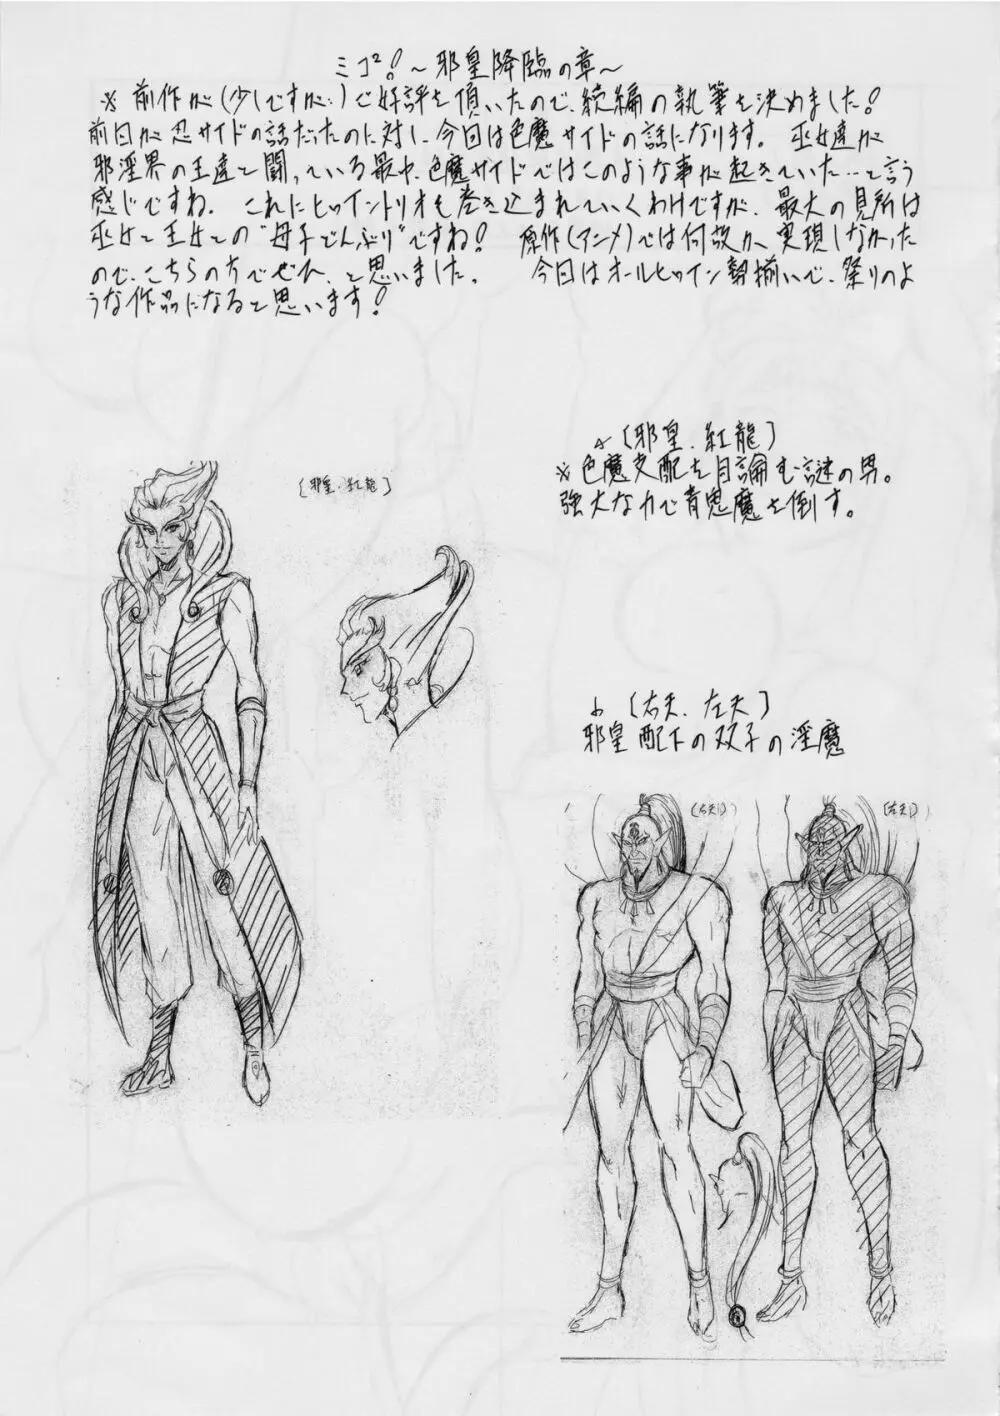 ミコ²!～邪皇降臨の章～
※前作が(少しですが…)で好評を頂いたので、続編の執筆を決めました!
前回が忍サイドの話だったのに対し、今回は色魔サイドの話になります。 巫女達が
邪淫界の王達と闘っている最中、色魔サイドではこのような事が起きていた…と言う
感じですね。 これにヒロイントリオも巻き込まれていくわけですが、最大の見所は
巫女と王女との"母子どんぶり"ですね! 原作(アニメ)では何故か、実現しなかった
ので、こちらの方でぜひ、と思いました。 今回はオールヒロイン勢揃いで、祭りのよ
うな作品になると思います!
(邪皇・紅龍)
※色魔支配を目論む謎の男。
強大な力で青鬼魔を倒す。
[邪皇・紅龍]
(右天、左天)
邪皇配下の双子の淫魔
(右天)
(左天)